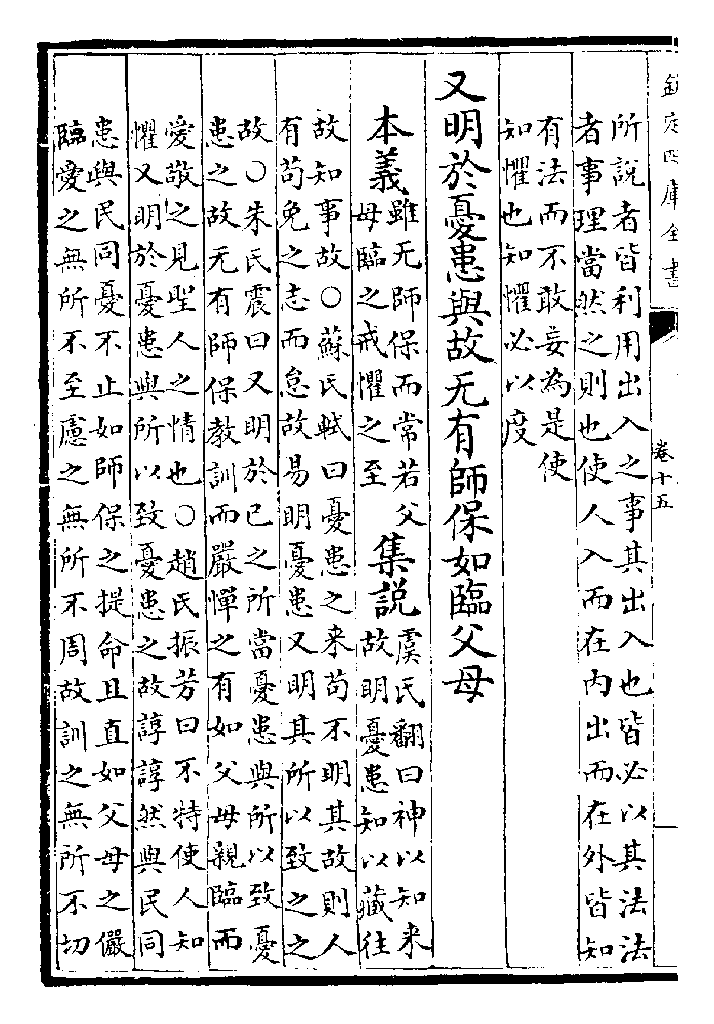 欽定四庫全書
卷十五
所說者皆利用出入之事其出入也皆必以其法法
者事理當然之則也使人入而在内出而在外皆知
有法而不敢妄為是使
知懼也知懼必以度
又明於憂患與故无有師保如臨父母
本義雖无師保而常若父
母臨之戒懼之至
集説虞氏翻曰神以知来
故明憂患知以藏往
故知事故○蘇氏軾曰憂患之来苟不明其故則人
有苟免之志而怠故易明憂患又明其所以致之之
故○朱氏震曰又明於已之所當憂患與所以致憂
患之故无有師保教訓而嚴憚之有如父母親臨而
愛敬之見聖人之情也○趙氏振芳曰不特使人知
懼又明於憂患與所以致憂患之故諄諄然與民同
患與民同憂不止如師保之提命且直如父母之儼
臨愛之無所不至慮之無所不周故訓之無所不切